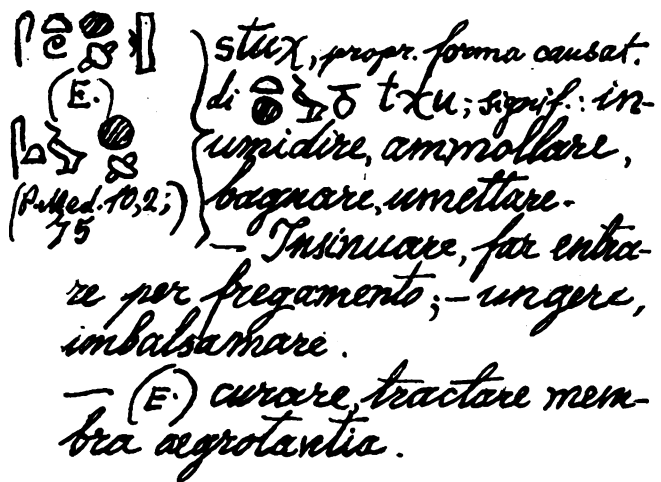 stuχ, propr. forma causat.
(E.) di tχu; signif.: in-
umidire, ammollare,
(P. Med. 10,2; bagnare, umettare.
75) — Insinuare, far entra-
re per fregamento; — ungere,
imbalsamare.
— (E.) curare, tractare mem-
bra aegrotantia.